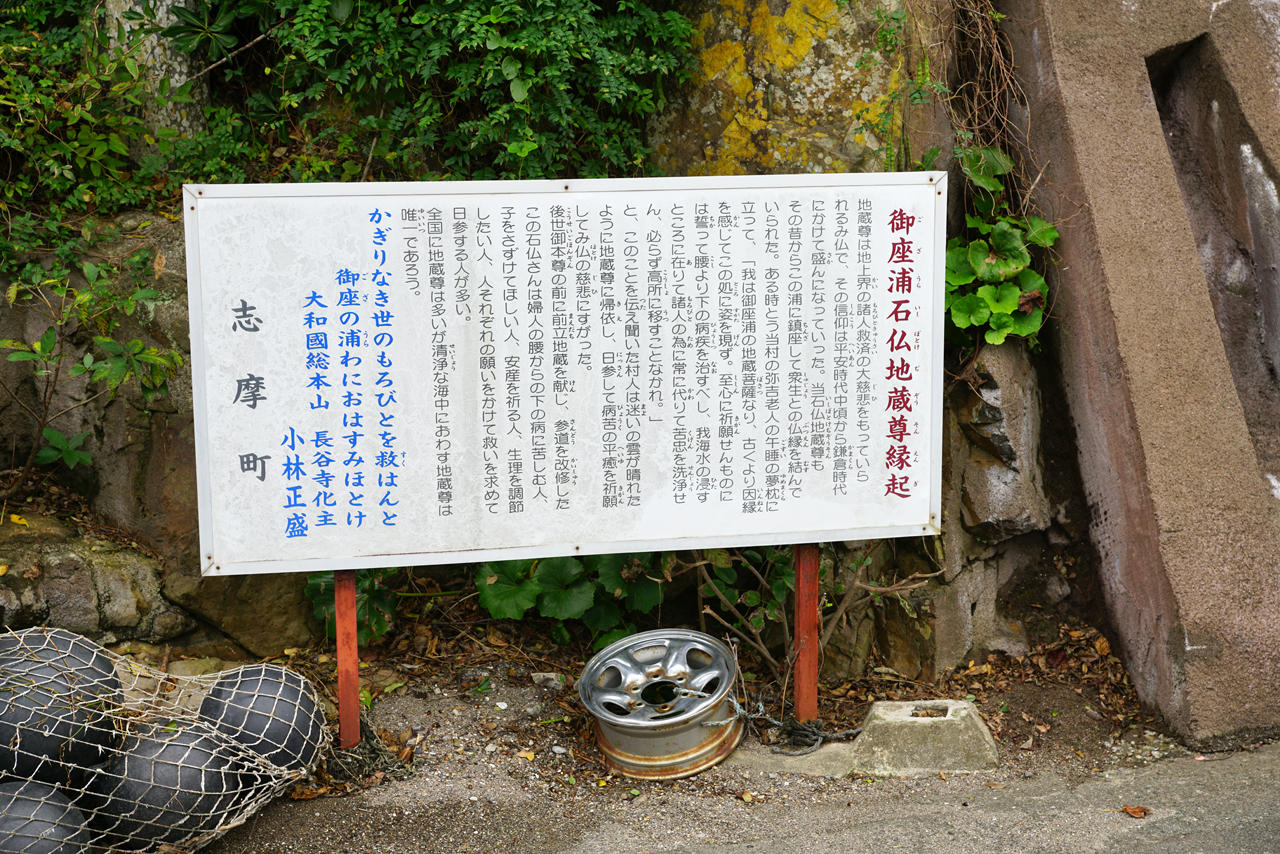 御座浦石仏地蔵尊縁起
地蔵尊は地上界の諸人救済の大慈悲をもっていら
れるみ仏で、その信仰は平安時代中頃から鎌倉時代
にかけて盛んになっていった。当石仏地蔵尊も
その昔からこの浦に鎮座して衆生との仏縁を結んで
いられた。ある時とう当村の弥吉老人の午睡の夢枕に
立って、「我は御座浦の地蔵菩薩なり、古くより因縁
を感じてこの処に姿を現ず。至心に祈願せんものに
は誓って腰より下の病疾を治すべし、我海水の浸す
ところに在りて諸人の為に常に代りて苦患を洗浄せ
ん、必らず高所に移すことなかれ。」
と、このことを伝え聞いた村人は迷いの雲が晴れた
ように地蔵尊に帰依し、日参して病苦の平癒を祈願
してみ仏の慈悲にすがった。
後世御本尊の前に前立地蔵を献じ、参道を改修した
この石仏さんは婦人の腰からの下の病に苦しむ人、
子をさずけてほしい人、安産を祈る人、生理を調節
したい人、人それぞれの願いをかけて救いを求めて
日参する人が多い。
全国に地蔵尊は多いが清浄な海中におわす地蔵尊は
唯一であろう。
かぎりなき世のもろびとを救はんと
御座の浦わにおはすみほとけ
大和國総本山 長谷寺化主
小林正盛
志摩町